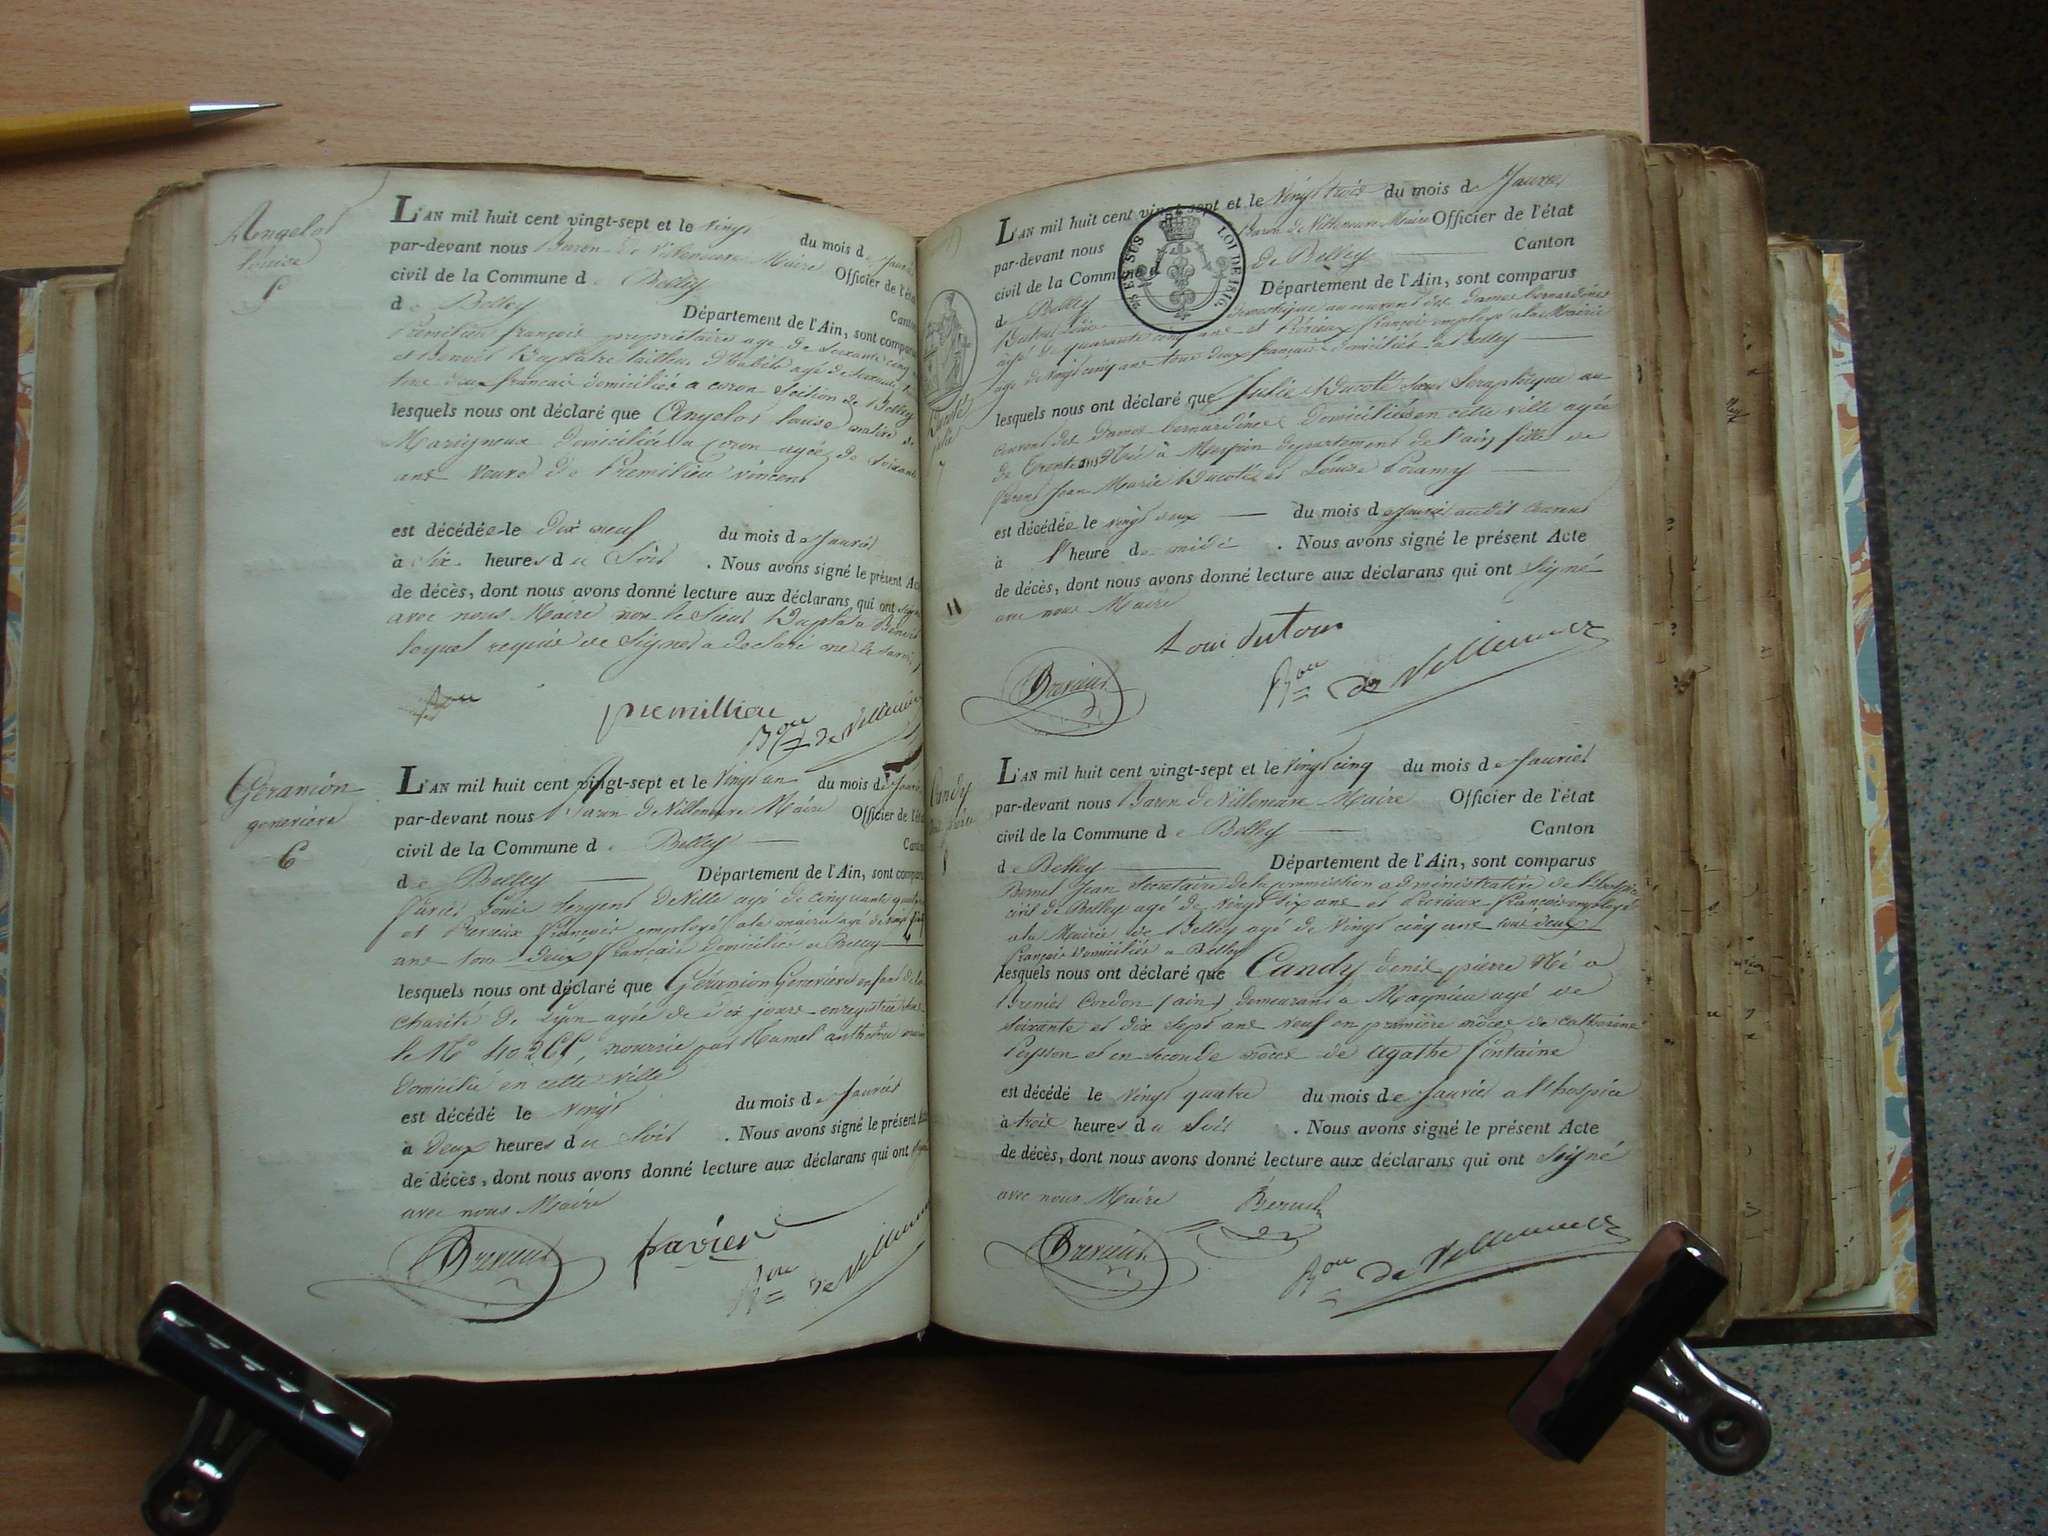 Angelot
Louise
5
L'AN mil huit cent vingt-sept et le vingt du mois de Janvier
par-devant nous Baron de Villeneuve Maire Officier de l'état
civil de la Commune de Belley Canton
de Belley Département de l'Ain, sont comparus
Premilieu françois propriétaire agé de soixante cinq
et Benoit Baptiste tailleur d'habits agé de
tous deux francais domiciliés a coron section de Belley
lesquels nous ont déclaré que Angelot Louise native de
Marigneux domiciliée a Coron agée de soixante
ans veuve de Premilieu vincent
est décédée le dix neuf du mois de Janvier
à six heures du soir. Nous avons signé le présent Acte
de décès, dont nous avons donné lecture aux déclarans qui ont signé
avec nous Maire non le Sieur Baptiste Benoit
lequel requis de signer a declaré ne le savoir
premillieu
Bon de Villeneuve
Géranion
genevieve
6
L'AN mil huit cent vingt-sept et le vingt un du mois de Janvier
par-devant nous Baron de Villeneuve Maire Officier de l'état
civil de la Commune de Belley Canton
de Belley Département de l'Ain, sont comparus
Louis sergent de Ville agé de cinquante quatre
et Brevieux François employé a la mairie agé de vingt
ans tous deux français domiciliés a Belley
lesquels nous ont déclaré que Géranion Genevieve enfant de la
charité de Lyon agée de dix jours enregistrée
le N° nourrie par Hamel anthelme
domicilié en cette ville
est décédé le vingt du mois de Janvier
à Deux heures du soir. Nous avons signé le présent Acte
de décès, dont nous avons donné lecture aux déclarans qui ont signé
avec nous Maire
Brevieux
Bon de Villeneuve
L'AN mil huit cent vingt-sept et le vingt trois du mois de Janvier
par-devant nous Baron de Villeneuve Maire Officier de l'état
civil de la Commune de Belley Canton
de Belley Département de l'Ain, sont comparus
LOI DE 1816.
Dutour Louis domestique au couvent des Dames bernardines
agé de quarante cinq ans et Brevieux François employé a la Mairie
agé de vingt cinq ans tous deux français domiciliés a Belley
Ducoté
julie
7
lesquels nous ont déclaré que Julie Ducoté sœur Seraphique au
couvent des Dames bernardines domiciliée en cette ville agée
de trente ans Née à Meyrion département de l'ain fille de
Jean Marie Ducoté et Louise
est décédée le vingt deux du mois de Janvier audit couvent
à l'heure de midi. Nous avons signé le présent Acte
de décès, dont nous avons donné lecture aux déclarans qui ont signé
avec nous Maire
11
Loui duTour
Brevieux
Bon de Villeneuve
Candy
8
L'AN mil huit cent vingt-sept et le vingt cinq du mois de Janvier
par-devant nous Baron de Villeneuve Maire Officier de l'état
civil de la Commune de Belley Canton
de Belley Département de l'Ain, sont comparus
Jean secretaire de la commission administrative de l'hospice
civil de Belley agé de vingt six ans et Brevieux François employé
a la Mairie de Belley agé de vingt cinq ans tous deux
français domiciliés a Belley
lesquels nous ont déclaré que Candy denis pierre Né a
Bregnier Cordon (ain) demeurant a Magnieu agé de
soixante et dix sept ans veuf en première nôce de catherine
Peysson et en seconde nôce de agathe fontaine
est décédé le vingt quatre du mois de Janvier a l'hospice
à trois heures du soir. Nous avons signé le présent Acte
de décès, dont nous avons donné lecture aux déclarans qui ont signé
avec nous Maire
Brevieux
Bon de Villeneuve